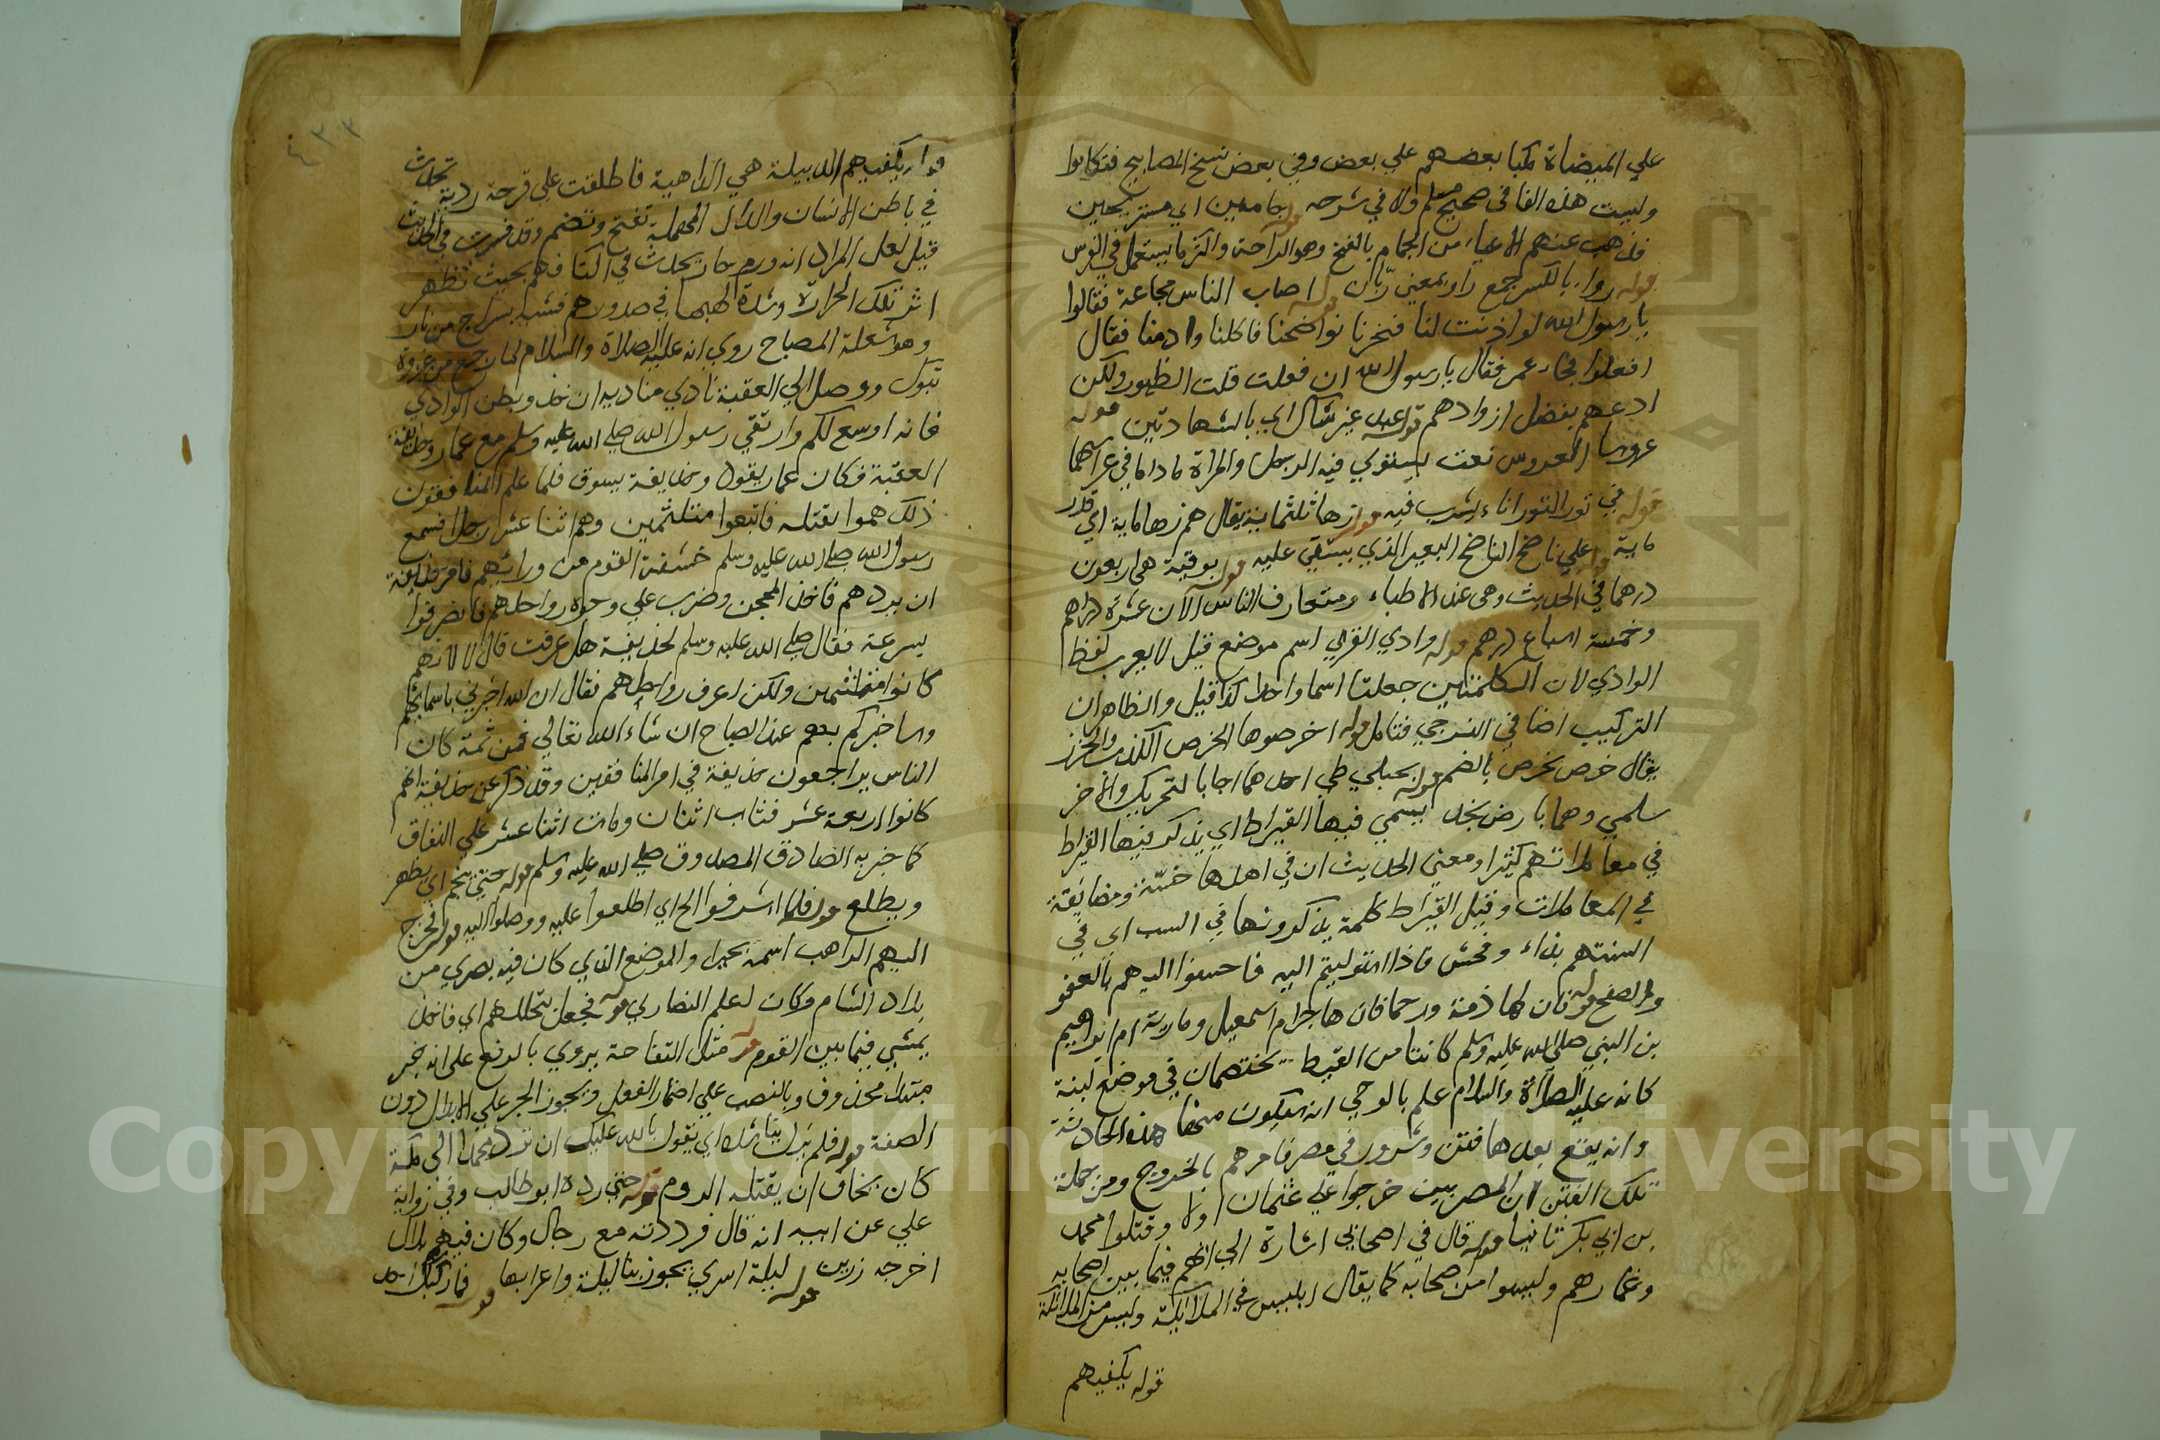 على الميضاة مكبا بعضهم علي بعض وفي بعض نسخ المصابيح فتكابوا
وليست هذه الفا في صحيح مسلم ولا في شرحه قوله جامين اي مستريحين
فذهب عنهم الاعياء من الجمام بالفتح وهو الراحة واكثر ما يستعمل في الفرس
قوله رواء بالكسر جمع راو بمعني ريان قوله اصاب الناس مجاعة فقالوا
يا رسول الله لو اذنت لنا فنحرنا نواضحنا فاكلنا وادهنا فقال
افعلوا فجاء عمر فقال يا رسول الله ان فعلت قلت الظهور ولكن
ادعهم بفضل ازوادهم قوله غير شاك اي بالشهادتين قوله
عروسا العروس نعت يستوي فيه الرجل والمراة ما داما في عراسهما
قوله في تور التور اناء يشرب فيه قوله زهاء ثلثماية يقال هم زهاء ماية اي قدر
ماية قوله علي ناضح الناضح البعير الذي يستقي عليه قوله بوقية هي اربعون
درهما في الحديث وهي عند الاطباء ومتعارف الناس الآن عشرة دراهم
وخمسة اسباع درهم قوله وادي القري اسم موضع قيل لا يعرب لفظ
الوادي لان الكلمتين جعلتا اسما واحدا كذا قيل والظاهر ان
التركيب اضافي فتامل قوله اخرصوها الخرص الكذب والحزر
يقال خرص يخرص بالضم قوله بجبلي طي احدهما اجا بالتحريك والاخر
سلمي وهما بارض نجد يسمي فيها القيراط اي يذكر فيها القيراط
في معاملاتهم كثيرا ومعني الحديث ان في اهلها خسة ومضايقة
في المعاملات وقيل القيراط كلمة يذكرونها في السب اي في
السنتهم بذاء وفحش فاذا استوليتم اليه فاحسنوا اليهم بالعفو
والصفح قوله فان لها ذمة ورحما فان هاجر ام اسمعيل ومارية ام ابراهيم
بن النبي صلي الله عليه وسلم كانتا من القبط يختصمان في موضع لبنة
كانه عليه الصلاة والسلام علم بالوحي انه سيكون هذه الحادثة
وانه يقع بعدها فتن وشرور في مصر فامرهم بالخروج ومن جملة
تلك الفتن ان المصريين خرجوا علي عثمان اولا وقتلوا محمد
بن ابي بكر ثانيا قوله قال في اصحابي اشارة الي انهم فيما بين اصحابه
وغمارهم وليسوا من صحابه كما يقال ابليس في الملائكة وليس من الملائكة
قوله يكفيهم
قوله يكفيهم الدبيلة هي الداهية فاطلقت علي قرحة ردية تحدث
في باطن الانسان والدال المهملة تفتح وتضم وقد فسرت في الحديث
قيل لعل المراد انه ورم حار يحدث في اكتافهم بحيث تظهر
اثر تلك الحرارة وشدة لهبها في صدورهم فشبه بسراج من نار
وهو شعلة المصباح روي انه عليه الصلاة والسلام لما رجع من غزوة
تبوك ووصل الي العقبة نادي مناديه ان خذوا بطن الوادي
فانه اوسع لكم وارتقي رسول الله صلي الله عليه وسلم مع عمار وحذيفة
العقبة فكان عمار يقود وحذيفة يسوق فلما علم المنافقون
ذلك هموا بقتله فاتبعوا متلثمين وهم اثنا عشر رجلا فسمع
رسول الله صلي الله عليه وسلم خشفة القوم من ورائهم فامر حذيفة
ان يردهم فاخذ المحجن وضرب علي وجوه رواحلهم فانصرفوا
بسرعة فقال صلي الله عليه وسلم لحذيفة هل عرفت قال لا لانهم
كانوا متلثمين ولكن اعرف رواحلهم فقال ان الله اخبرني باسمائهم
وساخبركم بهم عند الصباح ان شاء الله تعالي فمن ثمة كان
الناس يراجعون حذيفة في امر المنافقين وقد ذكر عن حذيفة انهم
كانوا اربعة عشر فتاب اثنان ومات اثنا عشر علي النفاق
كما خبر به الصادق المصدوق صلي الله عليه وسلم قوله حتي ينجم اي يظهر
ويطلع قوله فلما اشرفوا الخ اي اطلعوا عليه ووصلوا اليه قوله فخرج
اليهم الراهب اسمه بحيرا والموضع الذي كان فيه بصري من
بلاد الشام وكان اعلم النصاري قوله فجعل يتخللهم اي فاخذ
يمشي فيما بين القوم قوله مثل التفاحة يروي بالرفع علي انه خبر
مبتدا محذوف وبالنصب علي اضمار الفعل ويجوز الجر علي الابدال دون
الصفة قوله فلم يزل يناشده اي يقول بالله عليك ان ترد محمدا الي مكة
كان يخاف ان يقتله الروم قوله حتي رده ابو طالب وفي رواية
علي عن ابيه انه قال فرددته مع رجال وكان فيهم بلال
اخرجه زرين قوله ليلة اسري يجوز بنا ليلة واعرابها قوله فما ركبك احد